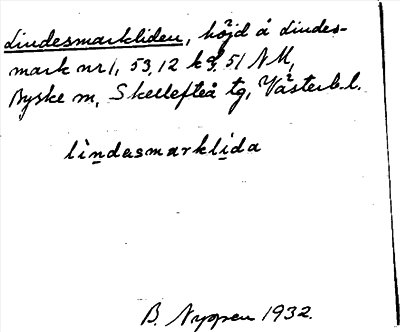 Lindesmarkliden, höjd å Lindes-
mark nr 1, 53, 12 kg, 51 NM,
Byske sn, Skellefteå tg, Västerb. l.
lindasmarklida
B. Nyppen 1932.